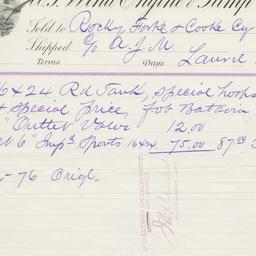 U.S. Wind Engine & Pump
Sold to Rocky Forke & Cooke Cy
Shipped C/o A. J. M. Laurel
Terms. Days.
6x24 Rd Tank, special hoops
& special price, fob Batavia
" Outlet Valve 12.00
6" Impd Spouts 16x24 75.00 87.00
-76 Origl.